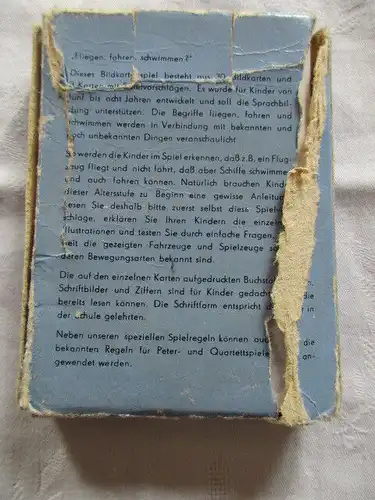 „Fliegen, fahren, schwimmen?"
Dieses Bildkartenspiel besteht aus 30 Bildkarten und
Karten mit Spielvorschlägen. Es wurde für Kinder von
fünf bis acht Jahren entwickelt und soll die Sprachbil-
dung unterstützen. Die Begriffe fliegen, fahren und
schwimmen werden in Verbindung mit bekannten und
noch unbekannten Dingen veranschaulicht
So werden die Kinder im Spiel erkennen, daß z.B. ein Flug-
zeug fliegt und nicht fährt, daß aber Schiffe schwimmen
und auch fahren können. Natürlich brauchen Kinder
dieser Altersstufe zu Beginn eine gewisse Anleitung
Lesen Sie deshalb bitte zuerst selbst diese Spiel-
schläge, erklären Sie Ihren Kindern die einzel
Illustrationen und testen Sie durch einfache Fragen,
weit die gezeigten Fahrzeuge und Spielzeuge so
deren Bewegungsarten bekannt sind.
Die auf den einzelnen Karten aufgedruckten Buchsta en,
Schriftbilder und Ziffern sind für Kinder gedacht die
bereits lesen können. Die Schriftform entspricht in
der Schule gelehrten.
Neben unseren speziellen Spielregeln können auch die
bekannten Regeln für Peter- und Quartettspiele an-
gewendet werden.